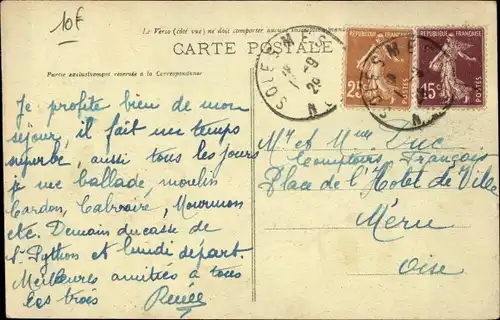 10F
Le Verso (côté vue) ne doit comporter aucune inscription manu
CARTE POSTALE
Partie exclusivement réservée à la Correspondance
RÉPUBLIQUE FRANÇAISE
25c
POSTES
RÉPUBLIQUE FRANÇAISE
15c
POSTES
SOLESMES
1-9
26
SOLESMES
Je profite bien de mon
séjour, il fait un temps
superbe, aussi tous les jours
je me ballade, moulin
Cardon, Calvaire, Mourmon
etc. Demain ducasse de
St Python et lundi départ.
Meilleures amitiés à tous
les trois
Renée
Mr et Mme Duc
Comptoirs Français
Place de l'Hotel de Ville
Méru
Oise